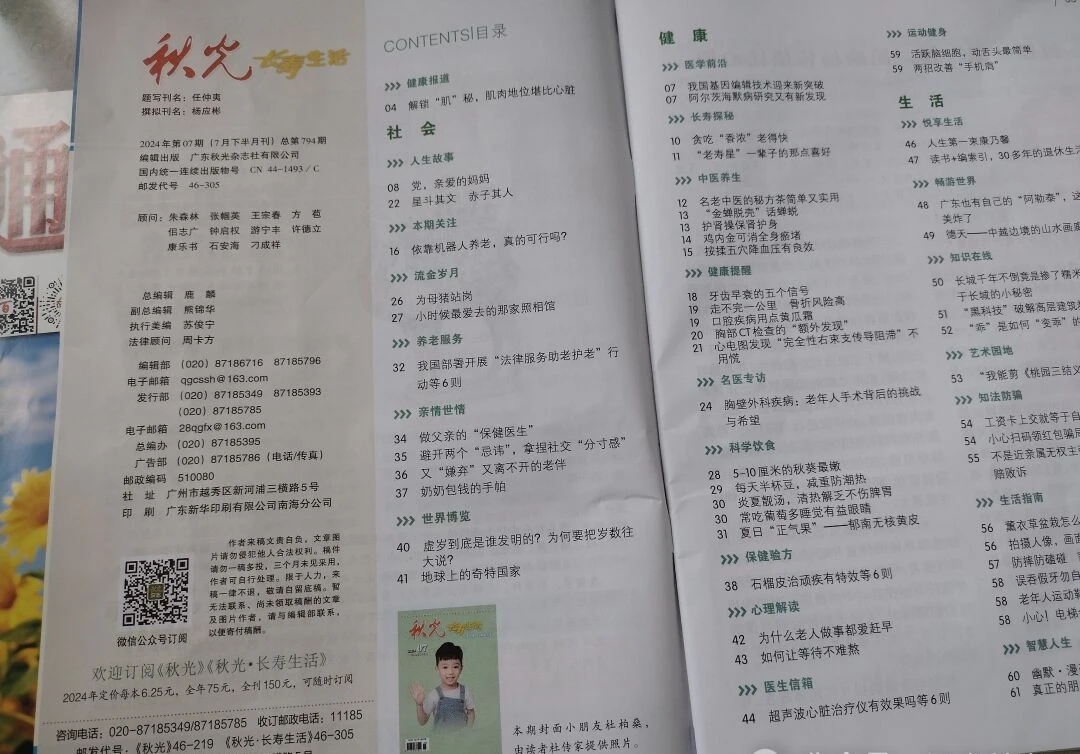 秋光 长寿生活
题写刊名：任仲夷
撰拟刊名：杨应彬
2024年第07期（7月下半月刊）总第794期
编辑出版 广东秋光杂志社有限公司
国内统一连续出版物号 CN 44-1493/C
邮发代号 46-305
顾问：朱森林 张帼英 王宗春 方苞
侣志广 钟启权 游宁丰 许德立
康乐书 石安海 刁成祥
总编辑 鹿麟
副总编辑 熊锦华
执行美编 苏俊宁
法律顾问 周卡方
编辑部 （020）87186716 87185796
电子邮箱 qgcssh@163.com
发行部 （020）87185349 87185393
（020）87185785
电子邮箱 28qgfx@163.com
总编办 （020）87185395
广告部 （020）87185786（电话/传真）
邮政编码 510080
社址 广州市越秀区新河浦三横路5号
印刷 广东新华印刷有限公司南海分公司
作者来稿文责自负，文章图
片请勿侵犯他人合法权利。稿件
请勿一稿多投，三个月未见采用，
作者可自行处理。限于人力，来
稿一律不退，敬请自留底稿。暂
无法联系、尚未领取稿酬的文章
及图片作者，请与编辑部联系，
以便寄付稿酬。
微信公众号订阅
欢迎订阅《秋光》《秋光·长寿生活》
2024年定价每本6.25元，全年75元，全刊150元，可随时订阅
咨询电话：020-87185349/87185785 收订邮政电话：11185
邮发代号：《秋光》46-219 《秋光·长寿生活》46-305
CONTENTS|目录
>>> 健康报道
04 解锁“肌”秘，肌肉地位堪比心脏
社会
>>> 人生故事
08 党，亲爱的妈妈
22 星斗其文 赤子其人
>>> 本期关注
16 依靠机器人养老，真的可行吗？
>>> 流金岁月
26 为母猪站岗
27 小时候最爱去的那家照相馆
>>> 养老服务
32 我国部署开展“法律服务助老护老”行
动等6则
>>> 亲情世情
34 做父亲的“保健医生”
35 避开两个“忌讳”，拿捏社交“分寸感”
36 又“嫌弃”又离不开的老伴
37 奶奶包钱的手帕
>>> 世界博览
40 虚岁到底是谁发明的？为何要把岁数往
大说？
41 地球上的奇特国家
秋光 长寿生活
07
本期封面小朋友杜柏燊，
由读者杜传家提供照片。
健康
>>> 医学前沿
07 我国基因编辑技术迎来新突破
07 阿尔茨海默病研究又有新发现
>>> 长寿探秘
10 贪吃“香浓”老得快
11 “老寿星”一辈子的那点喜好
>>> 中医养生
12 名老中医的秘方茶简单又实用
13 “金蝉脱壳”话蝉蜕
13 护肾操保肾护身
14 鸡内金可消全身瘀堵
15 按揉五穴降血压有良效
>>> 健康提醒
18 牙齿早衰的五个信号
19 走不完一公里 骨折风险高
19 口腔疾病用点黄瓜霜
20 胸部CT检查的“额外发现”
21 心电图发现“完全性右束支传导阻滞”不
用慌
>>> 名医专访
24 胸壁外科疾病：老年人手术背后的挑战
与希望
>>> 科学饮食
28 5-10厘米的秋葵最嫩
29 每天半杯豆，减重防潮热
30 炎夏靓汤，清热解乏不伤脾胃
30 常吃葡萄多睡觉有益眼睛
31 夏日“正气果”——郁南无核黄皮
>>> 保健验方
38 石榴皮治顽疾有特效等6则
>>> 心理解读
42 为什么老人做事都爱赶早
43 如何让等待不难熬
>>> 医生信箱
44 超声波心脏治疗仪有效果吗等6则
>>> 运动健身
59 活跃脑细胞，动舌头最简单
59 两招改善“手机危”
生活
>>> 悦享生活
46 人生第一束康乃馨
47 读书+编索引，30多年的退休生活
>>> 畅游世界
48 广东也有自己的“阿勒泰”，这
美炸了
49 德天——中越边境的山水画廊
>>> 知识在线
50 长城千年不倒竟是掺了糯米
于长城的小秘密
51 “黑科技”破解高层建筑
52 “乖”是如何“变乖”的
>>> 艺术园地
53 “我能剪《桃园三结义
>>> 知法防骗
54 工资卡上交就等于自
54 小心扫码领红包骗局
55 不是近亲属无权主
赔败诉
>>> 生活指南
56 薰衣草盆栽怎么
56 拍摄人像，画面
57 防摔防磕碰
58 误吞假牙勿自
58 老年人运动鞋
58 小心！电梯
>>> 智慧人生
60 幽默·漫画
61 真正的朋
通